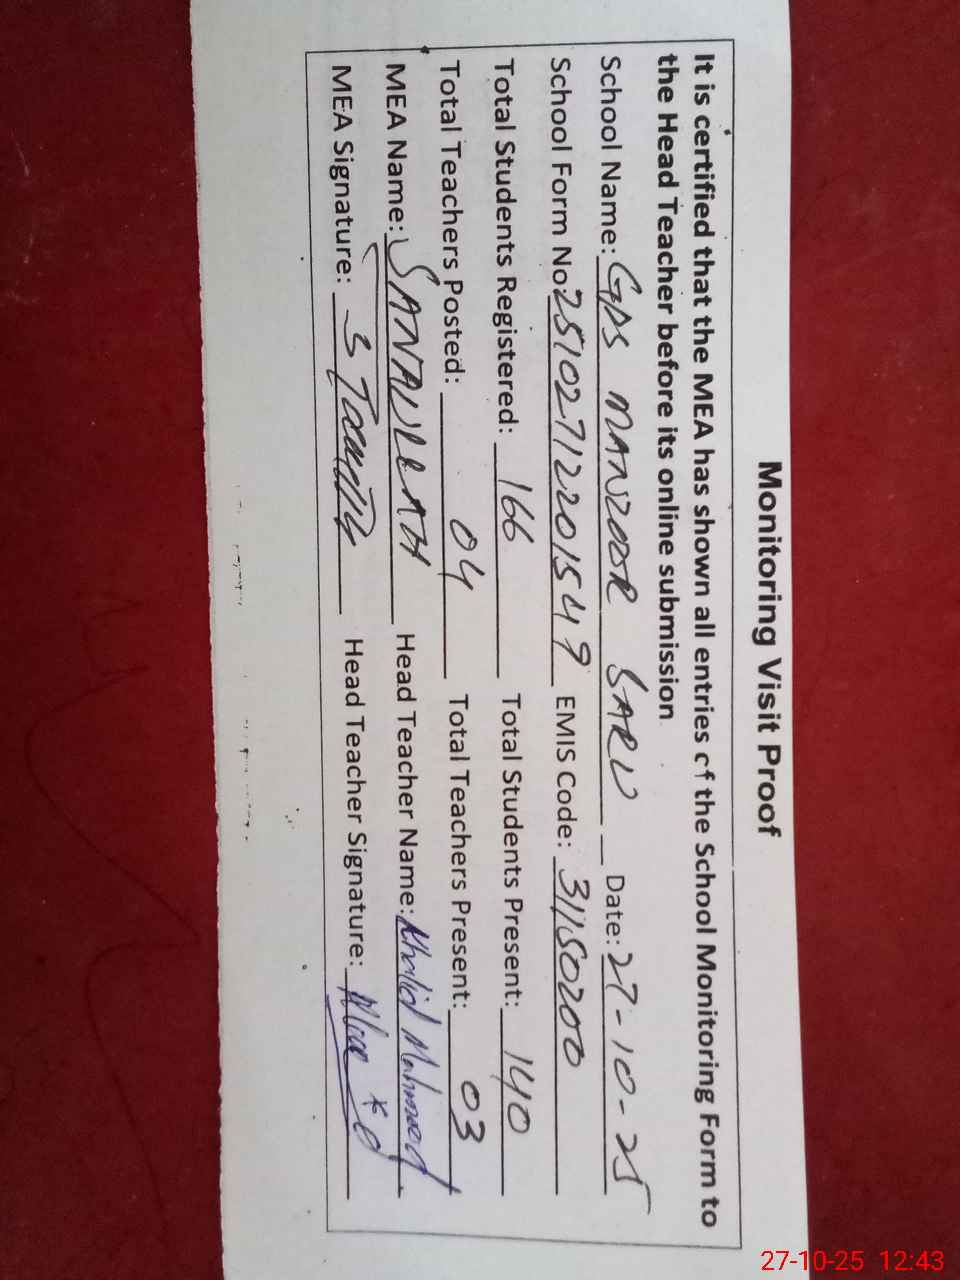 Monitoring Visit Proof
It is certified that the MEA has shown all entries of the School Monitoring Form to
the Head Teacher before its online submission
School Name: GPS MANZOOR SARU Date: 27-10-25
School Form No: 25102712201549 EMIS Code: 31150200
Total Students Registered: 166 Total Students Present: 140
Total Teachers Posted: 04 Total Teachers Present: 03
MEA Name: SANAULLAH Head Teacher Name: Khalid Mahmood
MEA Signature: Head Teacher Signature:
27-10-25 12:43